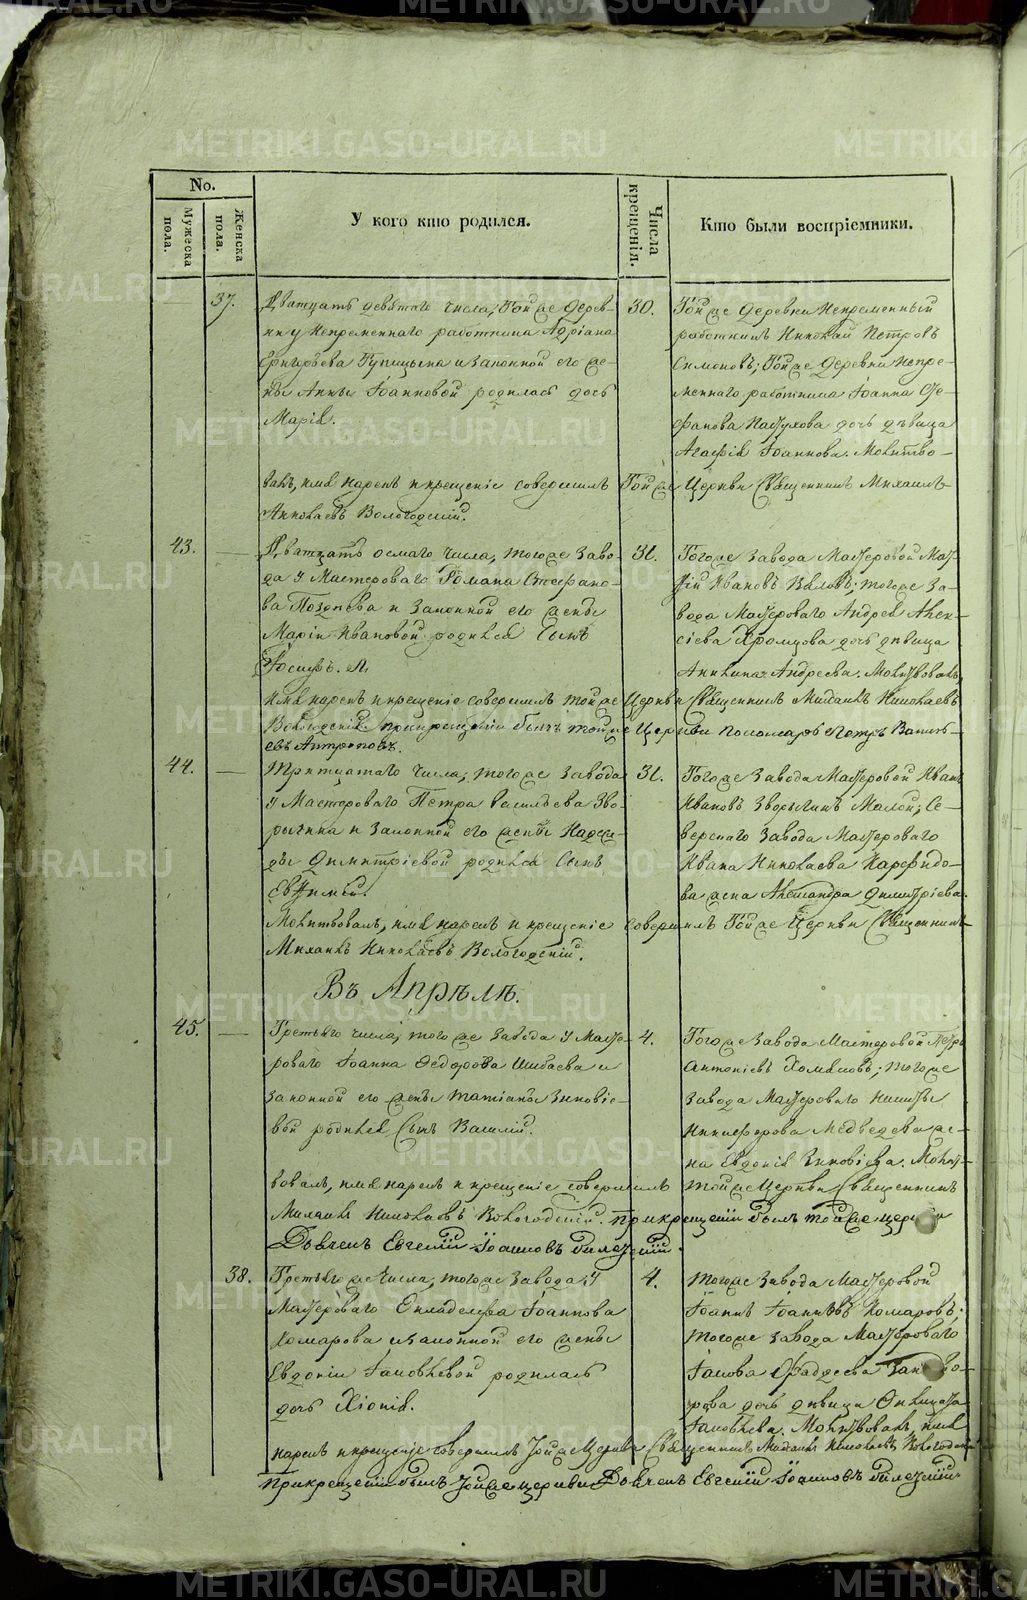 METRIKI.GASO-URAL.RU
No.
Мужеска пола.
Женска пола.
У кого кто родился.
Числа крещенія.
Кто были воспріемники.
37.
Дватцать девятого числа, Тойже дерев-
ни у Непременнаго работника Адріана
Григорьева и законной его же-
ны Анны Іоанновой родилась дочь
Марія.
30.
Тойже деревни Непременный
работникъ Николай Петровъ
Симоновъ; Тойже деревни Непре-
меннаго работника Іоанна Сте-
фанова Пастухова дочь дѣвица
Агафія Іоаннова. Молитво-
валъ, имя нарекъ и крещеніе совершилъ Тойже Церкви Священникъ Михаилъ
Николаевъ Вологодскій.
43.
Дватцать осмаго числа, тогоже заво-
да у Мастероваго Романа Стефано-
ва и законной его жены
Маріи Ивановой родился сынъ
Іосифъ.
31.
Тогоже завода Мастеровой
Ивановъ тогоже за-
вода Мастероваго Андрея Алек-
сіева Хромцова дочь дѣвица
Акилина Андреева. Молитвовалъ,
имя нарекъ и крещеніе совершилъ тойже Церкви Священникъ Михаилъ Николаевъ
Вологодскій. прикрещеніи былъ тойже Церкви пономарь Петръ Василь-
евъ Антроповъ.
44.
Тритцатаго числа, тогоже завода
у Мастероваго Петра Васильева Зво-
рыгина и законной его жены
Димитріевой родился сынъ
Евѳимій.
31.
Тогоже завода Мастеровой Иванъ
Ивановъ Зворыгинъ Малой; Се-
верскаго завода Мастероваго
Ивана Николаева
жена Александра Димитріева.
Молитвовалъ, имя нарекъ и крещеніе совершилъ Тойже Церкви Священникъ
Михаилъ Николаевъ Вологодскій.
Въ Апрѣлѣ.
45.
Третьяго числа, тогоже завода у Масте-
роваго Іоанна Ѳедорова Шибаева и
законной его жены Татіаны Зиновіе-
вой родился сынъ Василій.
4.
Тогоже завода Мастеровой Петръ
Антоніевъ Хомяковъ; тогоже
завода Мастероваго Никиты
Никифорова Медведева же-
на Евдокія Зиновіева. Молит-
вовалъ, имя нарекъ и крещеніе совершилъ тойже Церкви Священникъ
Михаилъ Николаевъ Вологодскій. прикрещеніи былъ тойже церкви
Дьячекъ Евгеній Іоанновъ
38.
Третьяго же числа, тогоже завода у
Мастероваго Іоаннова
Комарова и законной его жены
Евдокіи Іаковлевой родилась
дочь Хіонія.
4.
тогоже завода Мастеровой
Іоаннъ Іоанновъ Комаровъ;
тогоже завода Мастероваго
Іакова Фаддеева
дочь дѣвица
Іаковлева. Молитвовалъ, имя
нарекъ и крещеніе совершилъ тойже Церкви Священникъ Михаилъ Николаевъ Вологодскій
прикрещеніи былъ тойже церкви Дьячекъ Евгеній Іоанновъ